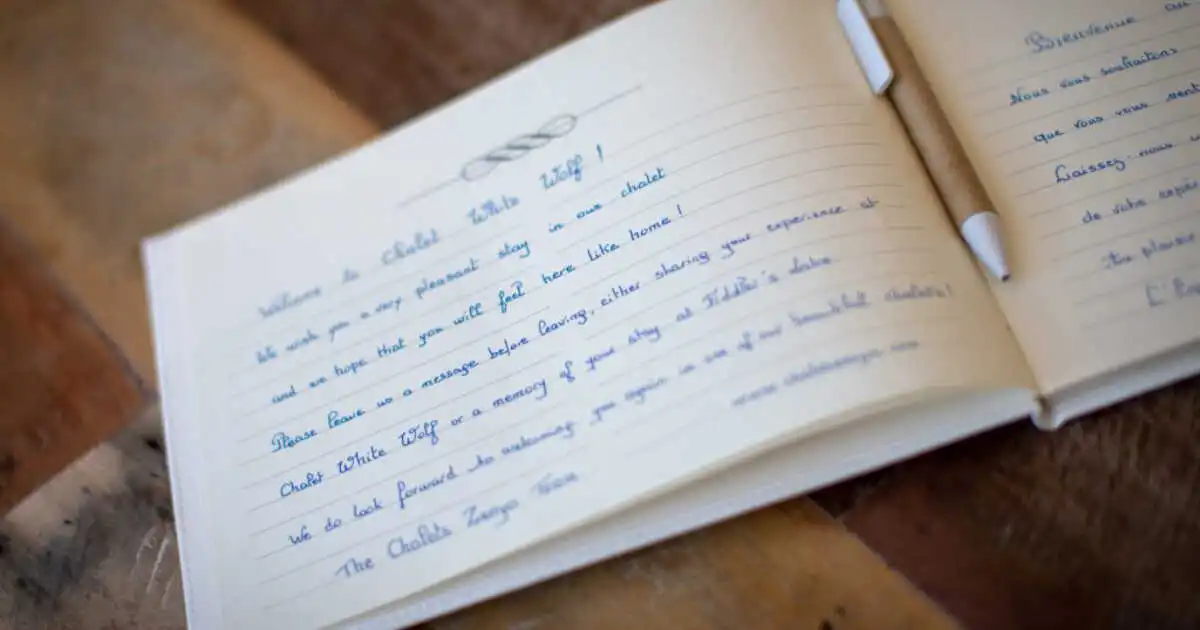 Welcome to Chalet White Wolf !
We wish you a very pleasant stay in our chalet
and we hope that you will feel here like home !
Please leave us a message before leaving, either sharing your experience at
Chalet White Wolf or a memory of your stay at Fiddler's Lake.
We do look forward to welcoming you again in one of our beautiful chalets!
The Chalets Zenya Team
Bienvenue au
Nous vous souhaitons
que vous vous sent
Laissez-nous
de votre expér
Au plaisir